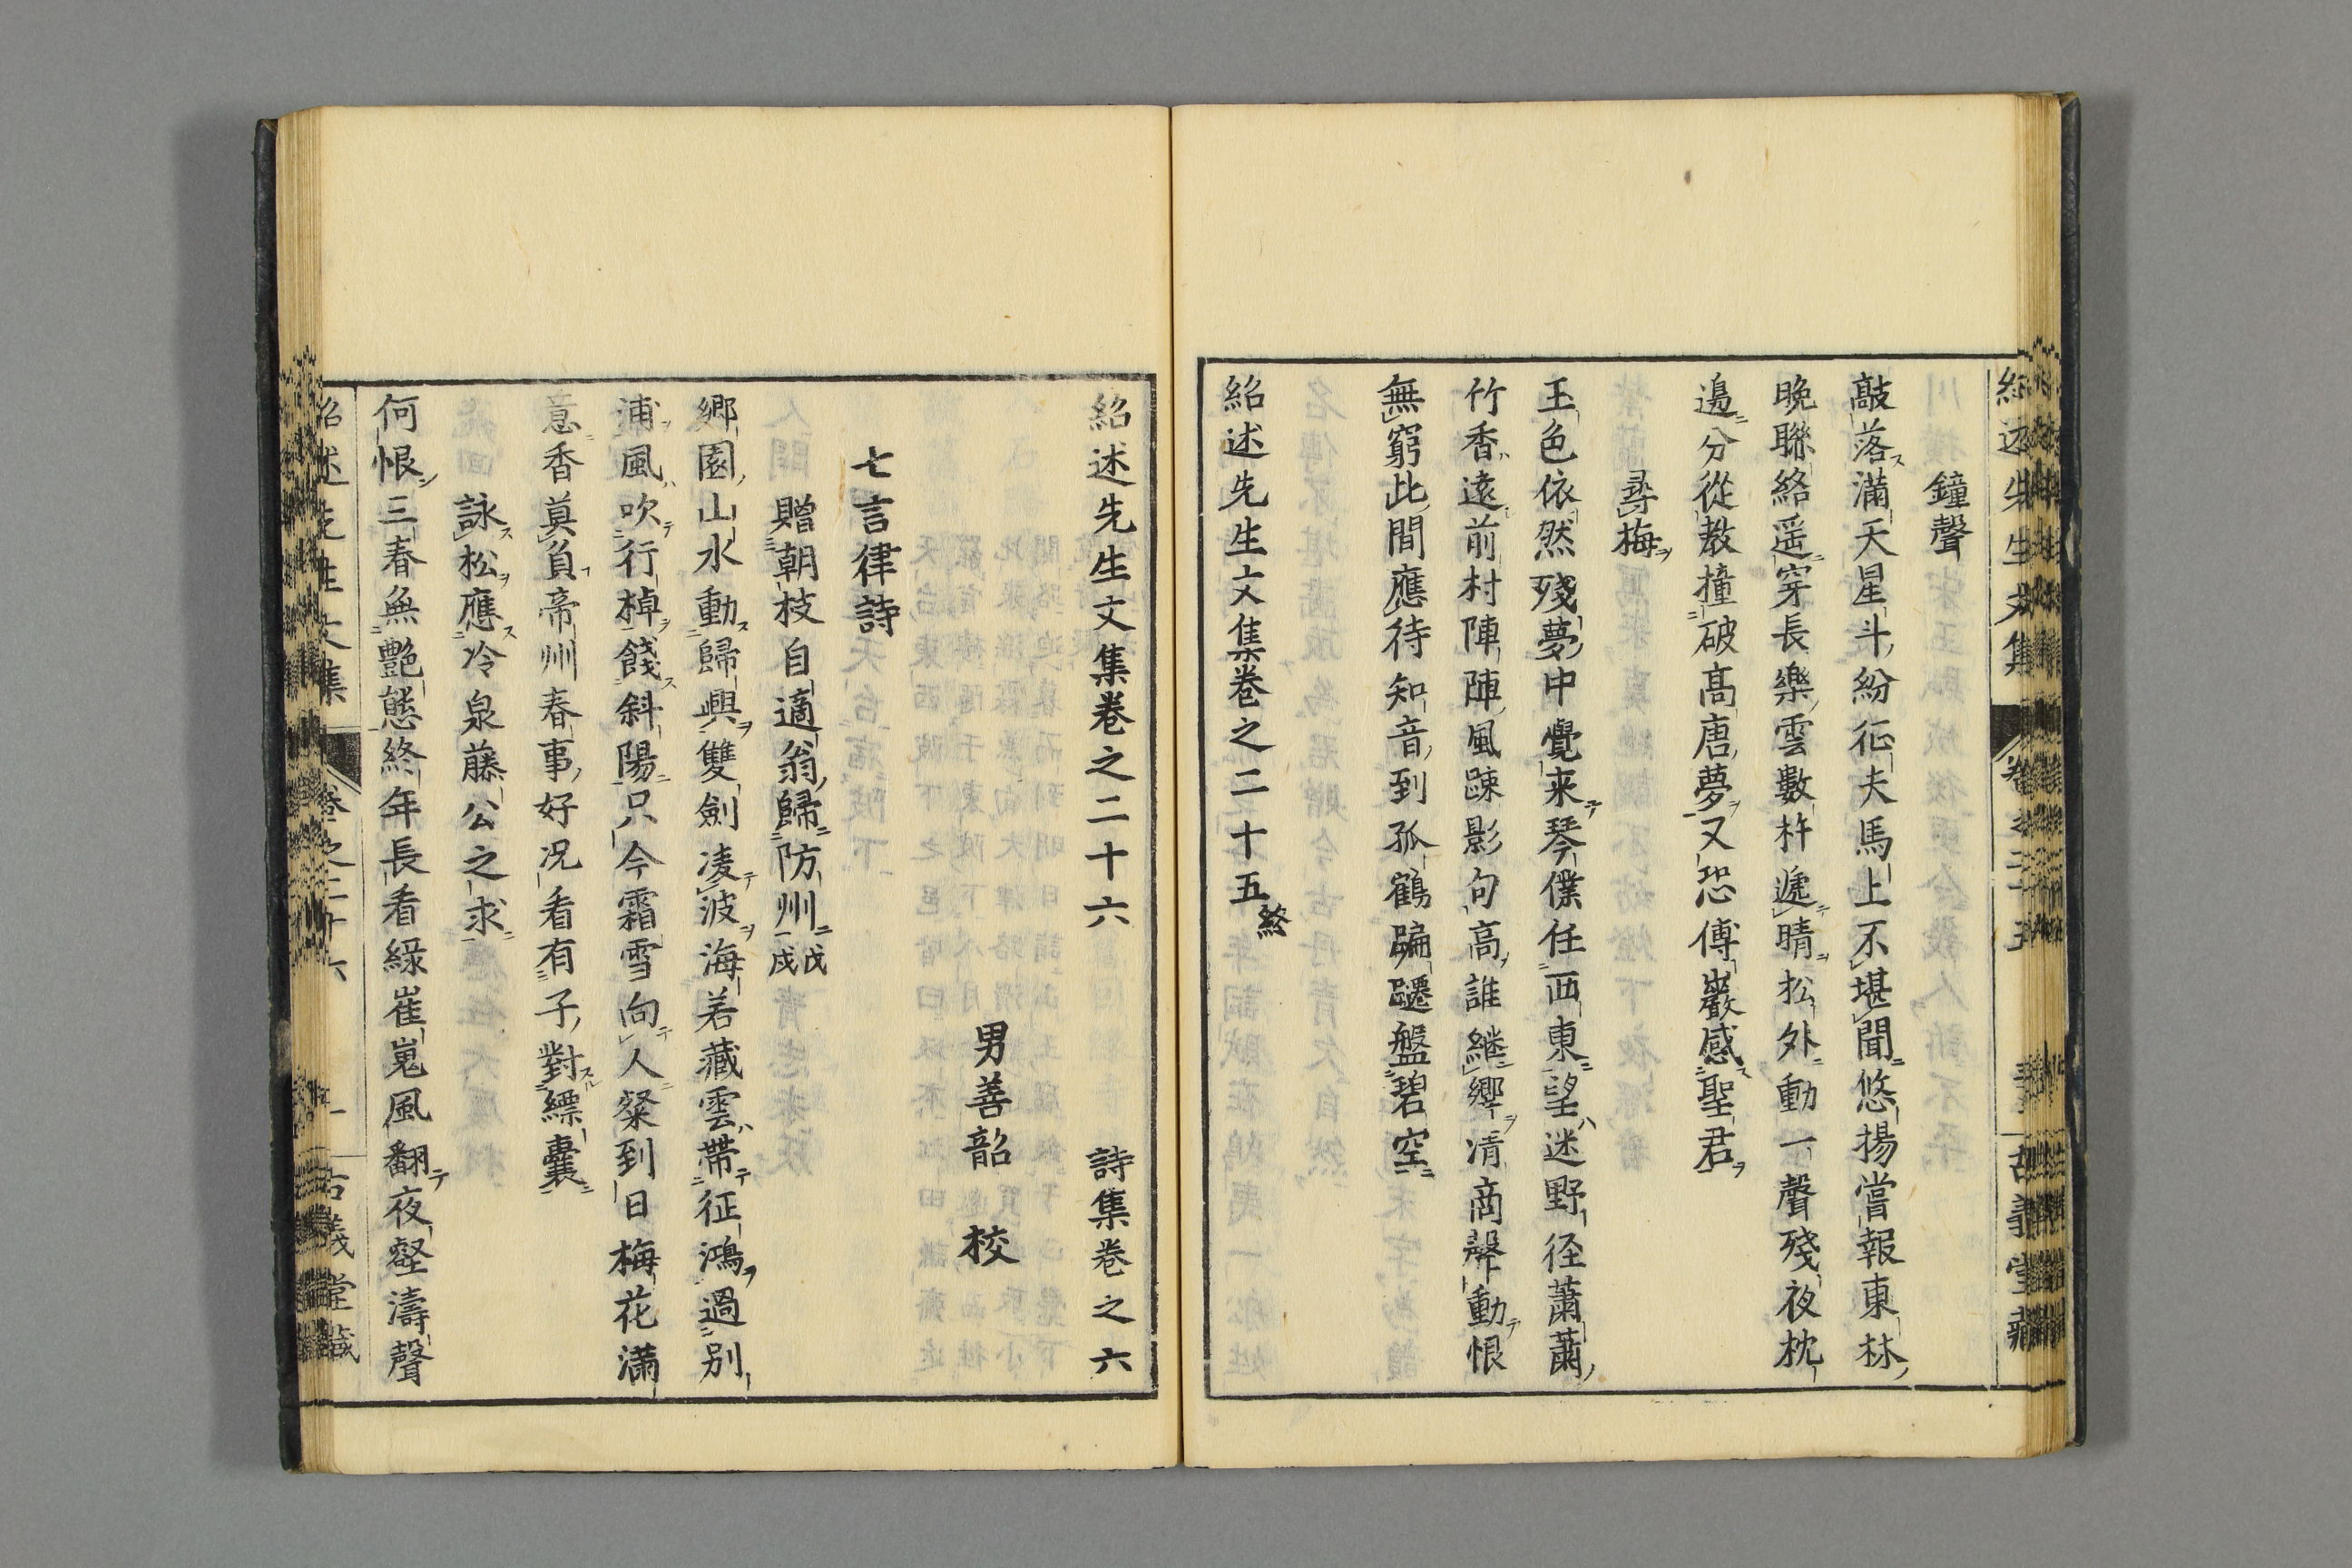 鐘聲
敲落滿天星斗紛征夫馬上不堪聞悠揚嘗報東林
晚聯絡遥穿長樂雲數杵遞晴松外動一聲殘夜枕
邊分從教撞破髙唐夢又恐傅巖感聖君
尋梅
玉色依然殘夢中覺来琴僕任西東望迷野径蕭蕭
竹香遠前村陣陣風踈影句高誰繼響清商聲動恨
無窮此間應待知音到孤鶴蹁躚盤碧空
紹述先生文集卷之二十五終
紹述先生文集卷之二十六 詩集卷之六
男善韶 校
七言律詩
贈朝枝自適翁歸防州戊戌
郷園山水動歸興雙劍凌波海若藏雲帶征鴻過別
浦風吹行棹餞斜陽只今霜雪向人粲到日梅花滿
意香莫負帝州春事好况看有子對縹囊
詠松應冷泉藤公之求
何恨三春無艷態終年長看綠崔嵬風翻夜壑濤聲